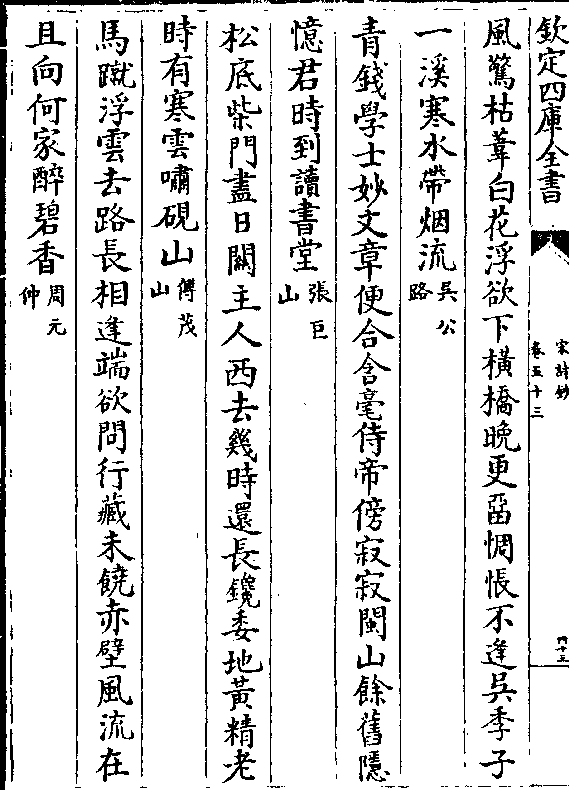 欽定四庫全書
宋詩鈔
卷五十三
四十三
風驚枯葦白花浮欲下橫橋晚更畱惆悵不逢吳季子
一溪寒水帶烟流吳公路
青錢學士妙文章便合含毫侍帝傍寂寂閩山餘舊隱
憶君時到讀書堂張巨山
松底柴門盡日關主人西去幾時還長鑱委地黃精老
時有寒雲嘯硯山傅茂山
馬蹴浮雲去路長相逢端欲問行藏未饒赤壁風流在
且向何家醉碧香周元仲